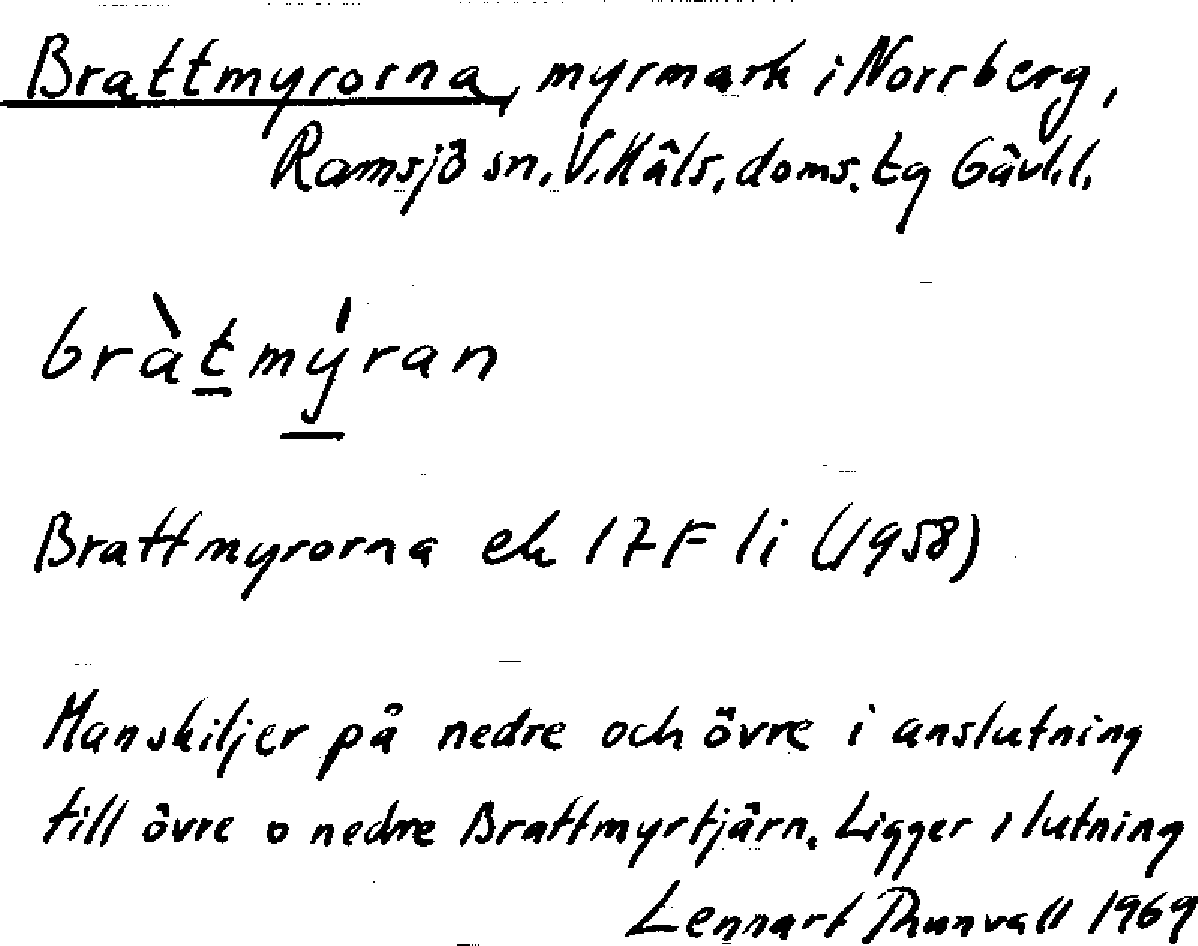 Brattmyrorna, myrmark i Norrberg,
Ramsjö sn. V. Häls. doms. tg Gävl.l.
bràtmýran
Brattmyrorna ek 17F 1i (1958)
Man skiljer på nedre och övre i anslutning
till övre o nedre Brattmyrtjärn. Ligger i lutning
Lennart Thunvall 1969